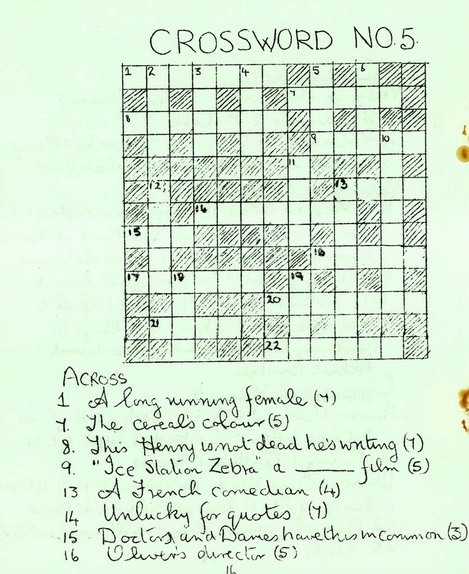 CROSSWORD NO.5.
1 2 3 4 5 6
7
8
9 10
11
12 13
14
15
16
17 18 19
20
21
22
ACROSS
1 A long running female (7)
7. The cereal's colour (5)
8. This Henry is not dead he's writing (7)
9. "Ice Station Zebra" a ______ film (5)
13 A French comedian (4)
14 Unlucky for quotes (7)
15 Doctors, and Dames have this in common (3)
16 Oliver's director (5)
16